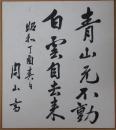 青山元不動
白雲自去来
昭和丁酉真夏
閑山書